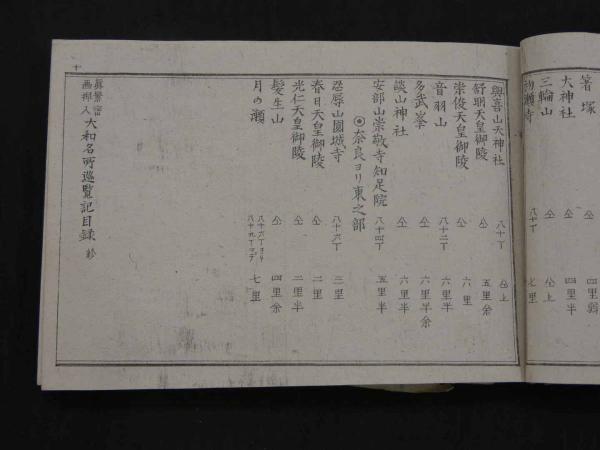 箸塚 仝 四里弱
大神社 仝 四里半
三輪山 仝 仝上
初瀬寺 八十丁 七里
與喜山天神社 八十丁 仝上
舒明天皇御陵 仝 五里余
崇俊天皇御陵 仝 六里
音羽山 八十二丁 六里半
多武峯 仝 六里半余
談山神社 仝 六里半
安部山崇敬寺知足院 八十四丁 五里半
◎奈良ヨリ東之部
忍辱山圓城寺 八十六丁 三里
春日天皇御陵 仝 二里
光仁天皇御陵 仝 二里半
髪生山 仝 四里余
月の瀬 八十六丁ヨリ八十九丁マデ 七里
眞景密画挿入 大和名所巡覧記目録 終
十